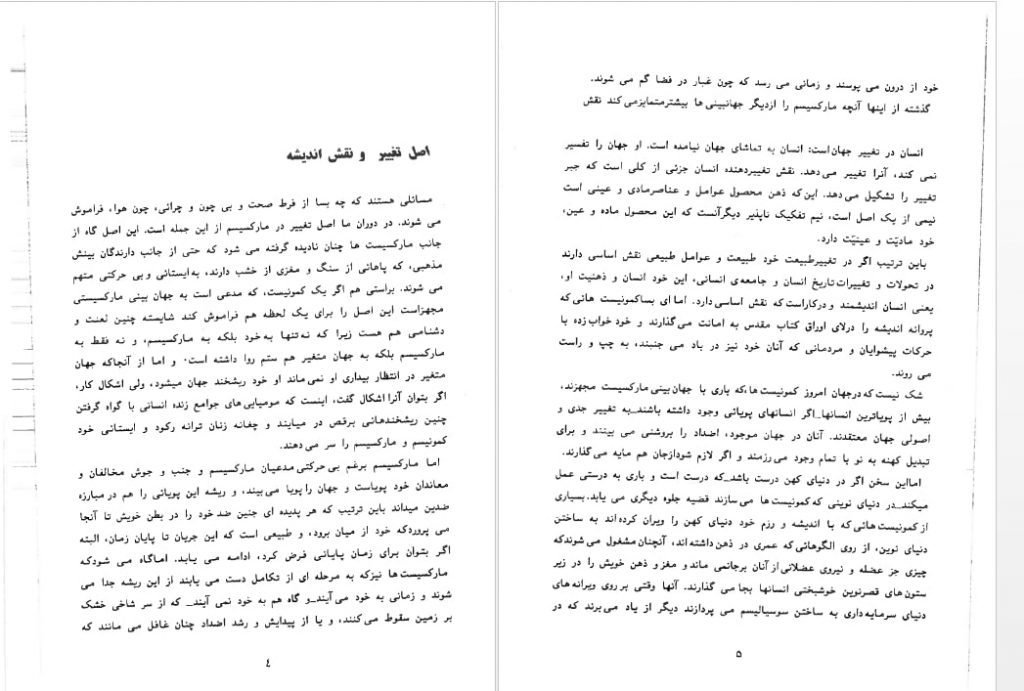 اصل تغییر و نقش اندیشه
مسائلی هستند که چه بسا از فرط صحت و بی چون و چرائی، چون هوا، فراموش
می شوند. در دوران ما اصل تغییر در مارکسیسم از این جمله است. این اصل گاه از
جانب مارکسیست ها چنان نادیده گرفته می شود که حتی از جانب دارندگان بینش
مذهبی، که پاهائی از سنگ و مغزی از خشب دارند، به‌ایستائی و بی حرکتی متهم
می شوند. براستی هم اگر یک کمونیست، که مدعی است به جهان بینی مارکسیستی
مجهزاست این اصل را برای یک لحظه هم فراموش کند شایسته چنین لعنت و
دشنامی هم هست زیرا که نه‌تنها به‌خود بلکه به مارکسیسم، و نه فقط به
مارکسیسم بلکه به جهان متغیر هم ستم روا داشته است۰ و اما از آنجاکه جهان
متغیر در انتظار بیداری او نمی‌ماند او خود ریشخند جهان میشود، ولی اشکال کار،
اگر بتوان آنرا اشکال گفت، اینست که مومیایی‌های جوامع زنده انسانی با گواه گرفتن
چنین ریشخندهائی برقص در میایند و چغانه زنان ترانه رکود و ایستائی خود
کمونیسم و مارکسیسم را سر می دهند.
اما مارکسیسم برغم بی حرکتی مدعیان مارکسیسم و جنب و جوش مخالفان و
معاندان خود پویاست و جهان را پویا می بیند، و ریشه این پویائی را هم در مبارزه
ضدین میداند باین ترتیب که هر پدیده ای جنین ضد خود را در بطن خویش تا آنجا
می پروردکه خود از میان برود، و طبیعی است که این جریان تا پایان زمان، البته
اگر بتوان برای زمان پایانی فرض کرد، ادامه می یابد. اماگاه می شودکه
مارکسیست ها نیزکه به مرحله ای از تکامل دست می یابند از این ریشه جدا می
شوند و زمانی به خود می آیند_و گاه هم به خود نمی آیند_ که از سر شاخی خشک
بر زمین سقوط می‌کنند، و یا از پیدایش و رشد اضداد چنان غافل می مانند که
٤
خود از درون می پوسند و زمانی می رسد که چون غبار در فضا گم می شوند.
گذشته از اینها آنچه مارکسیسم را ازدیگر جهانبینی ها بیشترمتمایزمی کند نقش
انسان در تغییر جهان‌است: انسان به تماشای جهان نیامده است. او جهان را تفسیر
نمی کند، آنرا تغییر می‌دهد. نقش تغییردهنده انسان جزئی از کلی است که جبر
تغییر را تشکیل می‌دهد. این‌که ذهن محصول عوامل و عناصرمادی و عینی است
نیمی از یک اصل است، نیم تفکیک ناپذیر دیگرآنست که این محصول ماده و عین،
خود مادیّت و عینیّت دارد.
باین ترتیب اگر در تغییرطبیعت خود طبیعت و عوامل طبیعی نقش اساسی دارند
در تحولات و تغییرات تاریخ انسان و جامعه‌ی انسانی، این خود انسان و ذهنیت او،
یعنی انسان اندیشمند و درکاراست که نقش اساسی دارد. اما ای بساکمونیست هائی که
پروانه اندیشه را درلای اوراق کتاب مقدس به امانت می‌گذارند و خود خواب زده با
حرکات پیشوایان و مردمانی که آنان خود نیز در باد می جنبند، به چپ و راست
می روند.
شک نیست که درجهان امروز کمونیست ها،که باری با جهان‌بینی مارکسیست مجهزند،
بیش از پویاترین انسانها_اگر انسانهای پویائی وجود داشته باشند_به تغییر جدی و
اصولی جهان معتقدند. آنان در جهان موجود، اضداد را بروشنی می بینند و برای
تبدیل کهنه به نو با تمام وجود می‌رزمند و اگر لازم شودازجان هم مایه می‌گذارند.
امااین سخن اگر در دنیای کهن درست باشد_که درست است و باری به درستی عمل
میکند_در دنیای نوینی که‌کمونیست ها می سازند قضیه جلوه دیگری می یابد.بسیاری
از کمونیست هائی که با اندیشه و رزم خود دنیای کهن را ویران کرده‌اند به ساختن
دنیای نوین، از روی الگوهائی که عمری در ذهن داشته اند، آنچنان مشغول می شوندکه
چیزی جز عضله و نیروی عضلانی از آنان برجانمی ماند و مغز و ذهن خویش را در زیر
ستون های قصرنوین خوشبختی انسانها بجا می گذارند. آنها وقتی بر روی ویرانه های
دنیای سرمایه‌داری به ساختن سوسیالیسم می پردازند دیگر از یاد می برند که در
۵